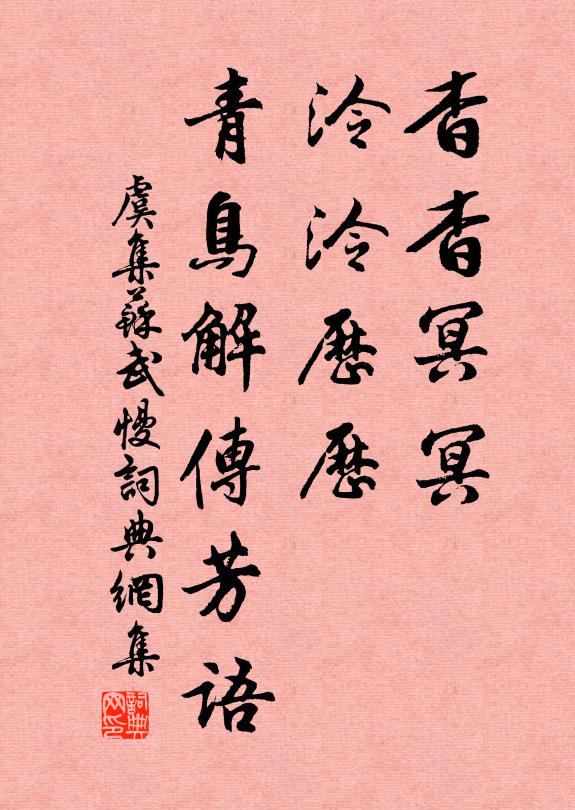 杳杳冥冥
泠泠歷歷
青鳥解傳芳語
虞集蘇武慢詞典網集
詞典網印